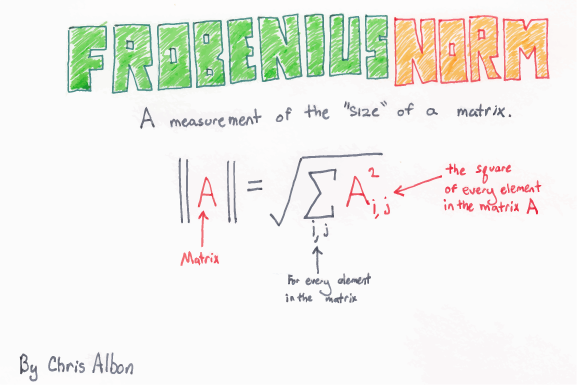 FROBENIUS NORM
A measurement of the "size" of a matrix.
||A|| = √∑ A²i,j
i,j
the square
of every element
in the matrix A
Matrix
For every element
in the matrix
By Chris Albon